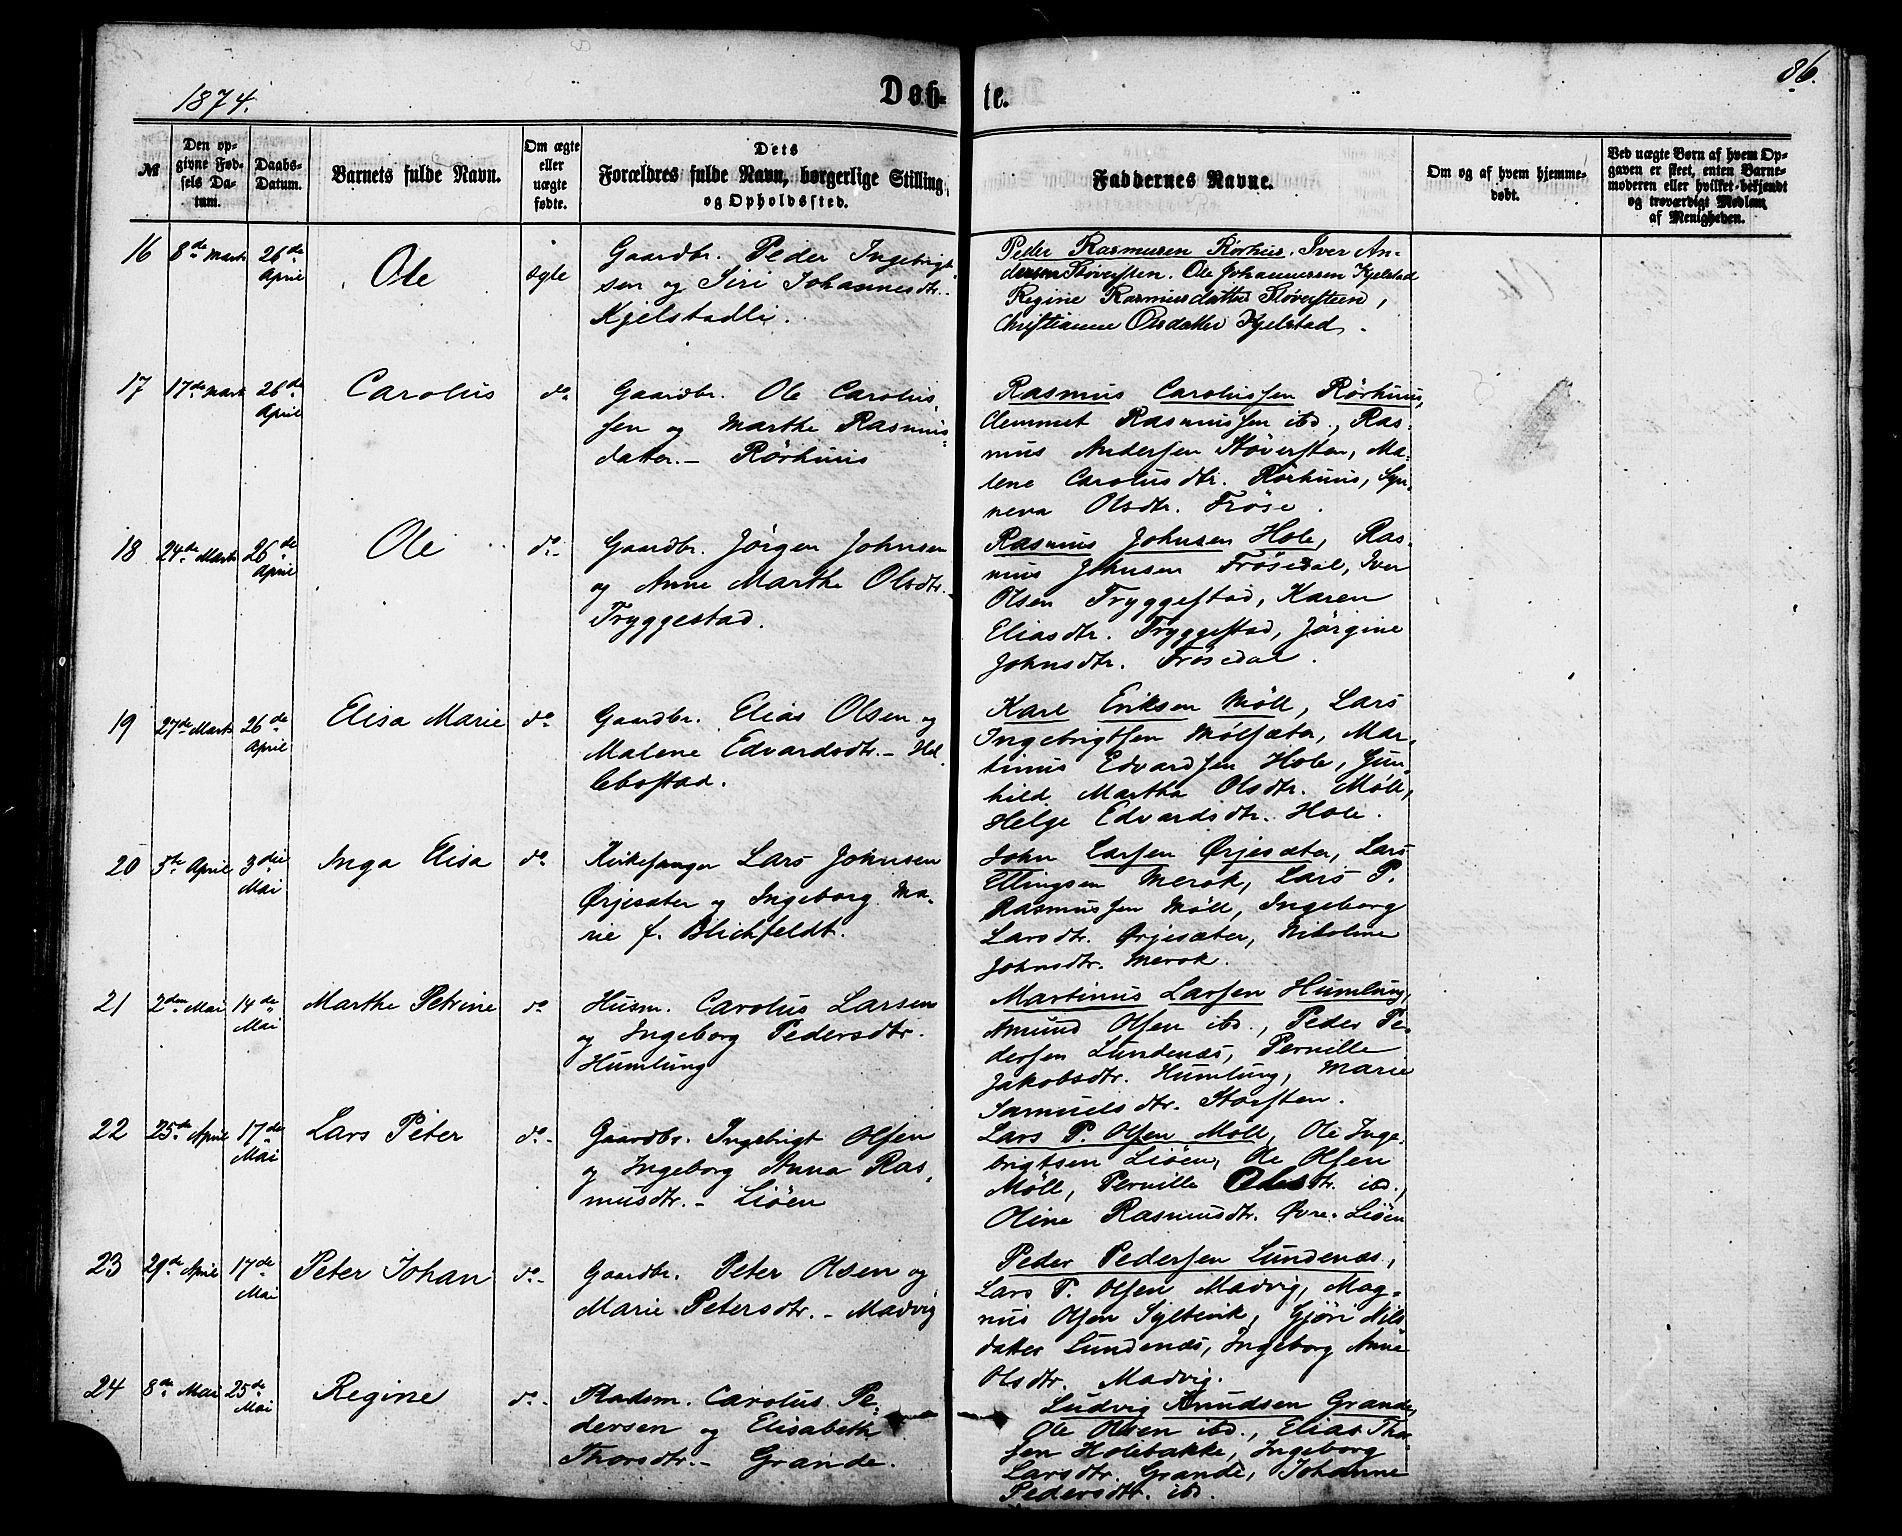 86.
1874.
Døb- te.
№
Den opgivne Fødsels Datum.
Daabs-Datum.
Barnets fulde Navn.
Om ægte eller uægte fødte.
Dets Forældres fulde Navn, borgerlige Stilling og Opholdssted.
Faddernes Navne.
Om og af hvem hjemmedøbt.
Ved uægte Børn af hvem Opgaven er skeet, enten Barnemoderen eller hvilket bekjendt og troværdigt Medlem af Menigheden.
16 8de Marts 26de April Ole ægte
Gaardbr. Peder Ingebrigt-
sen og Siri Johannesdtr.-
Kjelstadli.
Peder Rasmusen Rørhus. Iver An-
dersen Støversten. Ole Johannessen Kjelstad
Regine Rasmusdatter Støversteen,
Christianne Olsdatter Kjelstad.
17 17de Marts 26de April Carolus do
Gaardbr. Ole Carolus-
sen og Marthe Rasmus-
datter.- Rørhuus
Rasmus Carolussen Rørhuus,
Clemmet Rasmussen ibd., Ras-
mus Andersen Støversten, Ma-
lene Carolusdtr. Rørhuus, Syn-
neva Olsdtr. Frøse.
18 24de Marts 26de April Ole do.-
Gaardbr. Jørgen Johnsen
og Anne Marthe Olsdtr.-
Tryggestad.
Rasmus Johnsen Hole, Ras-
mus Johnsen Frøsedal, Iver
Olsen Tryggestad, Karen
Eliasdtr. Tryggestad, Jørgine
Johnsdtr. Frøsedal.
19 27de Marts 26de April Elisa Marie do
Gaardbr. Elias Olsen og
Malene Edvardsdtr.- Hel-
lebostad.
Karl Eriksen Möll, Lars
Ingebrigtsen Mølsæter, Mar-
tinus Edvardsen Hole, Gun-
hild Martha Olsdtr. Möll,
Helge Edvardsdtr. Hole.
20 5te April 3die Mai Inga Elisa do
Kirkesanger Lars Johnsen
Ørjesæter og Ingeborg Ma-
rie f. Blichfeldt.
John Larsen Ørjesæter, Lars
Ellingsen Merok, Lars P.
Rasmussen Möll, Ingeborg
Larsdtr. Ørjesæter, Nikoline
Johnsdtr. Merok.
21 2den Mai 14de Mai Marthe Petrine do
Husm. Carolus Larsen
og Ingeborg Pedersdtr.
Humlung
Martinus Larsen Humlung,
Amund Olsen ibd., Peder Pe-
dersen Lundenæs, Pernille
Jakobsdtr. Humlung, Marie
Samuelsdtr. Storsten.
22 25de April 17de Mai Lars Peter do.-
Gaardbr. Ingebrigt Olsen
og Ingeborg Anna Ras-
musdtr.- Liöen
Lars P. Olsen Möll, Ole Inge-
brigtsen Liöen, Ole Olsen
Möll, Pernille Olsdtr. ibd.,
Oline Rasmusdtr. Øvre-Liöen
23 29de April 17de Mai Peter Johan do.-
Gaardbr. Peter Olsen og
Marie Petersdtr.- Madvig
Peder Pedersen Lundenæs,
Lars P. Olsen Madvig, Mag-
nus Olsen Syltevik, Gjöri Nils-
datter Lundenæs, Ingeborg Anne
Olsdtr. Madvig.
24 8de Mai 25de Mai Regine do.-
Pladsm. Carolus Pe-
dersen og Elisabeth
Thorsdtr.- Grande.
Ludvig Knudsen Grande,
Ole Olsen ibd., Elias Thor-
sen Holebakke, Ingeborg
Larsdtr. Grande, Johanne
Pedersdtr. ibd.